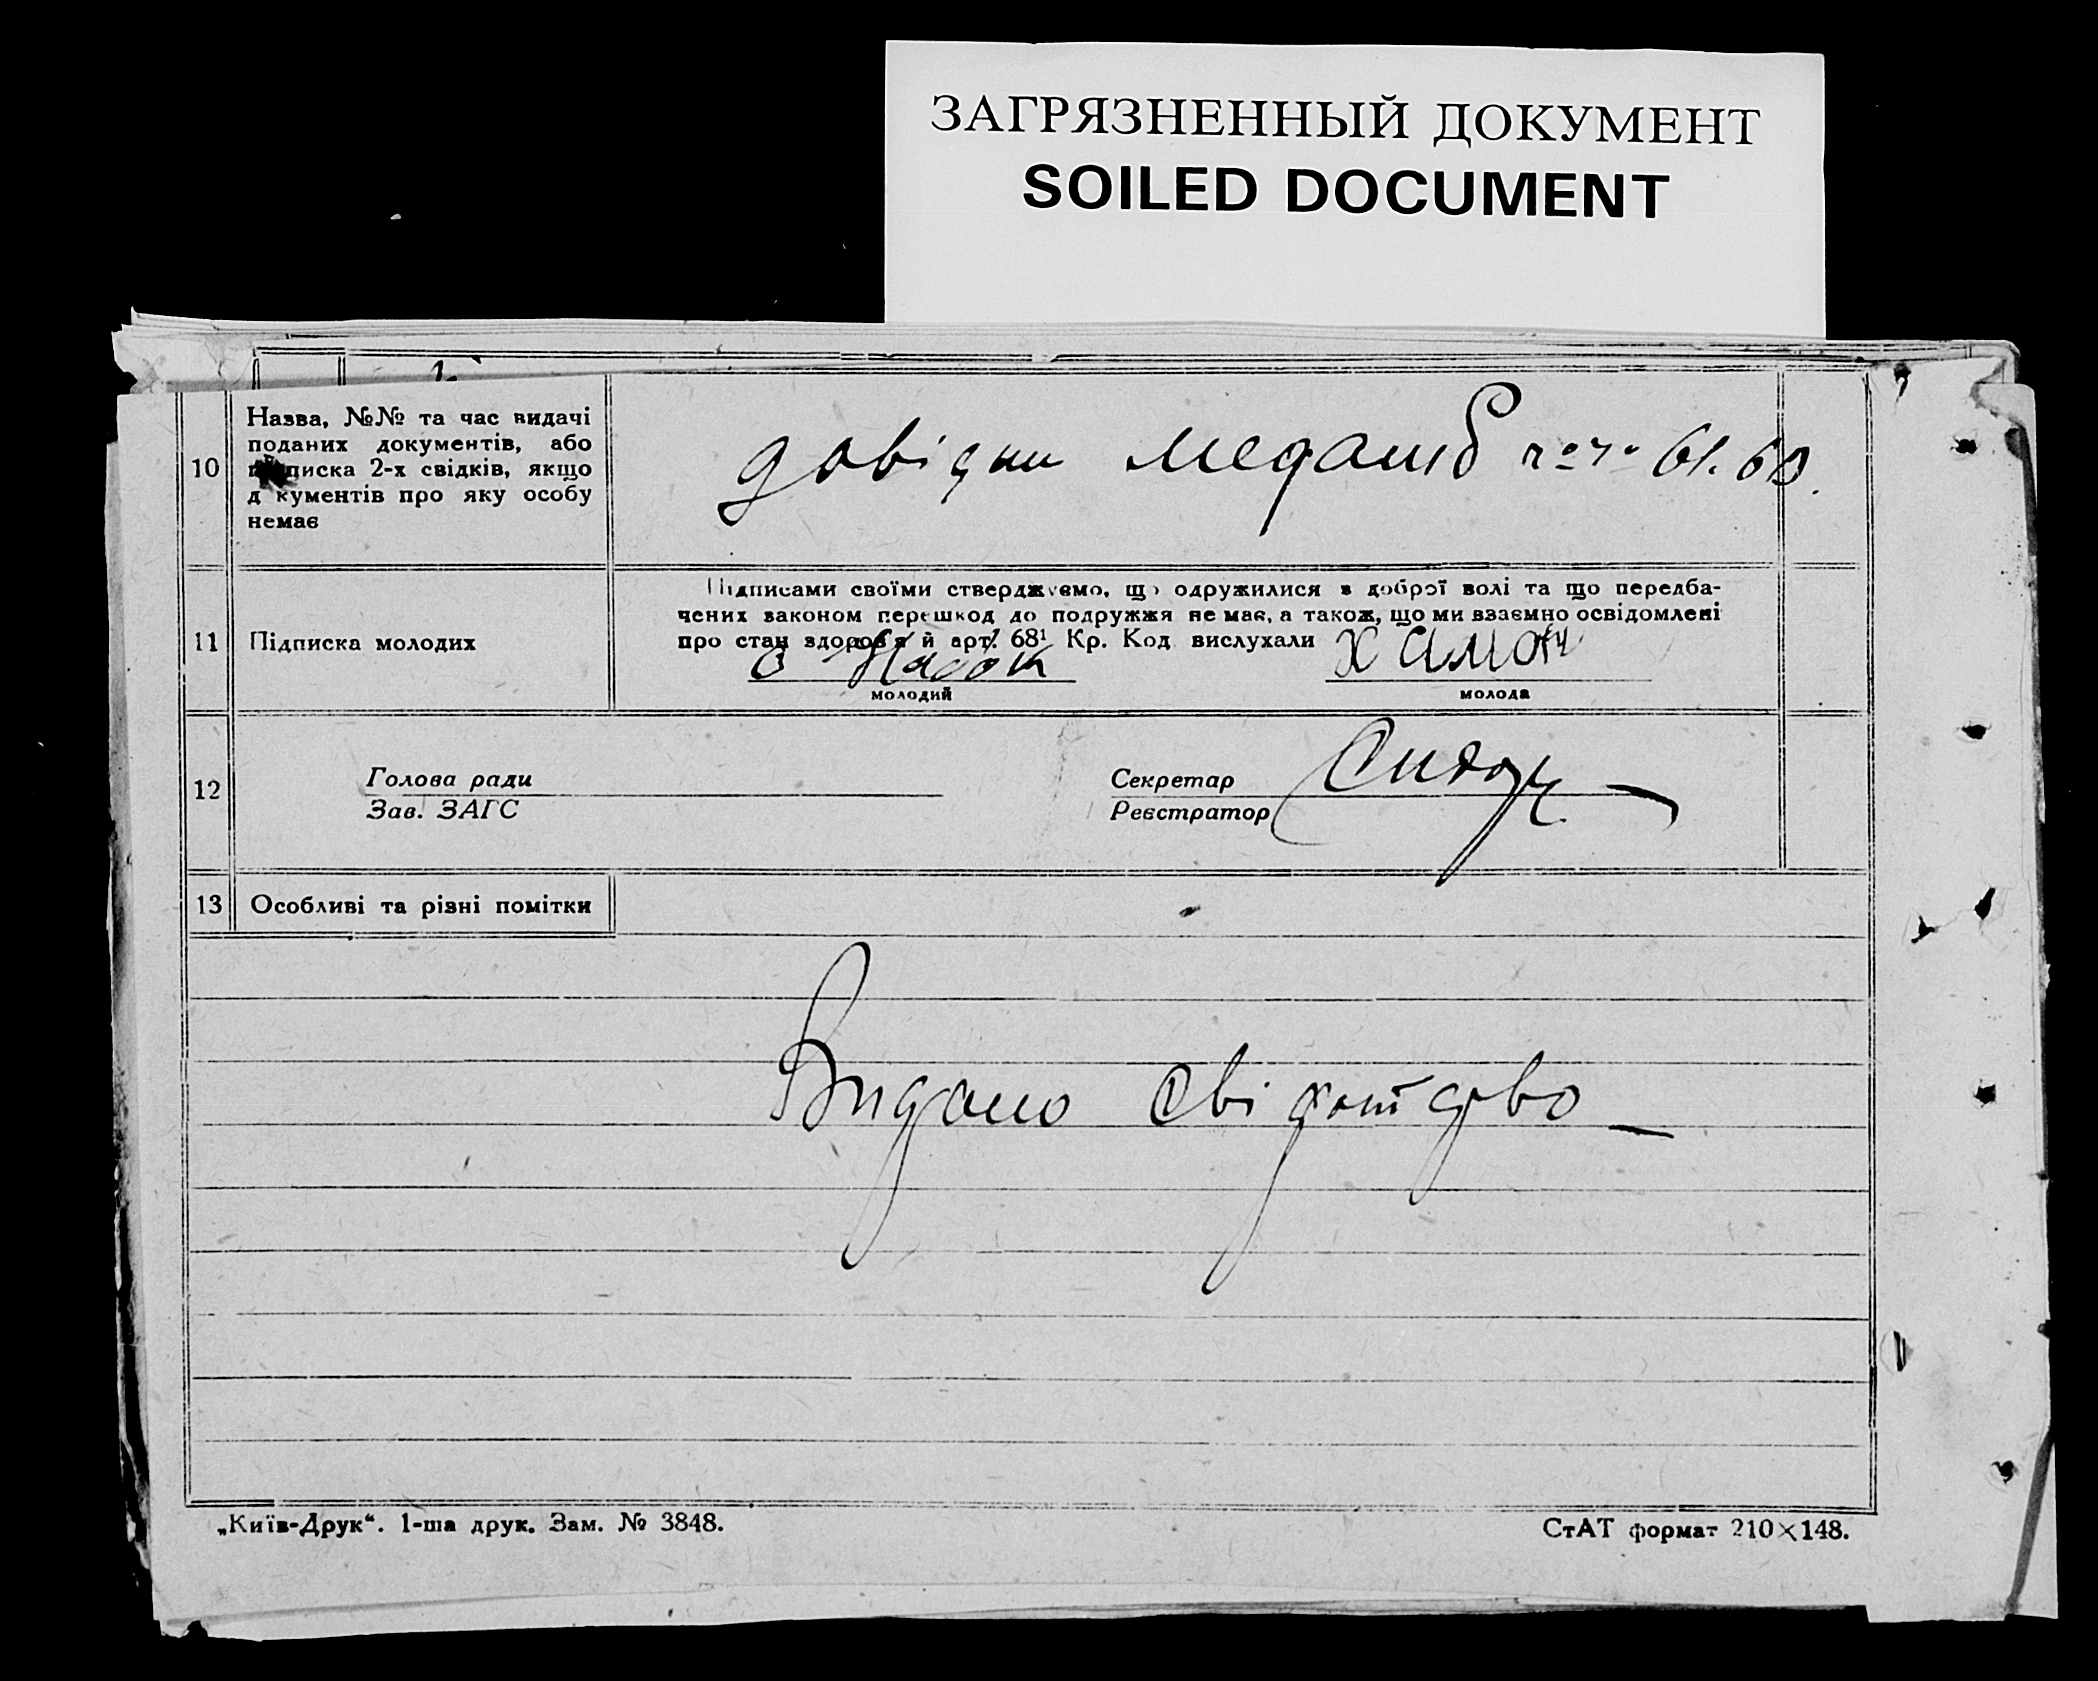 ЗАГРЯЗНЕННЫЙ ДОКУМЕНТ
SOILED DOCUMENT
10
Назва, №№ та час видачі
поданих документів, або
підписка 2-х свідків, якщо
д кументів про яку особу
немає
довідки 61. 60.
11
Підписка молодих
Підписами своїми стверджуємо, що одружилися з доброї волі та що передба-
чених законом перешкод до подружжя не має, а також, що ми взаємно освідомлені
про стан здоров'я й арт. 68¹ Кр. Код вислухали
молодий
молода
12
Голова ради
Зав. ЗАГС
Секретар
Реєстратор
13
Особливі та різні помітки
Видано свідотцтво —
„Київ-Друк“. 1-ша друк. Зам. № 3848.
СтАТ формат 210×148.